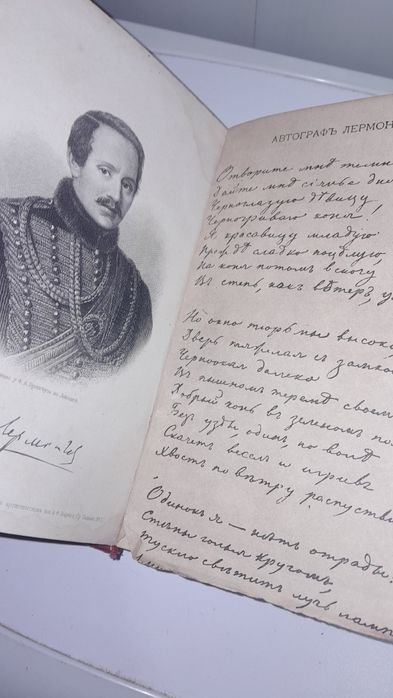 Лермонтов
АВТОГРАФЪ ЛЕРМОН
Отворите мнѣ темн
Дайте мнѣ сіянье дня
Черноглазую дѣвицу
Черногриваго коня!
Я красавицу младую
Прежде сладко поцѣлую
На коня потомъ вскочу
Въ степь, какъ вѣтеръ, у
Но окно тюрьмы высоко
Дверь тяжелая съ замко
Черноокая далеко
Въ пышномъ теремѣ своем
Добрый конь въ зеленомъ по
Безъ узды, одинъ, по волѣ
Скачетъ веселъ и игривъ
Хвостъ по вѣтру распусти
Одинокъ я — нѣтъ отрады.
Стѣны голыя кругомъ,
Тускло свѣтитъ лучъ ламп